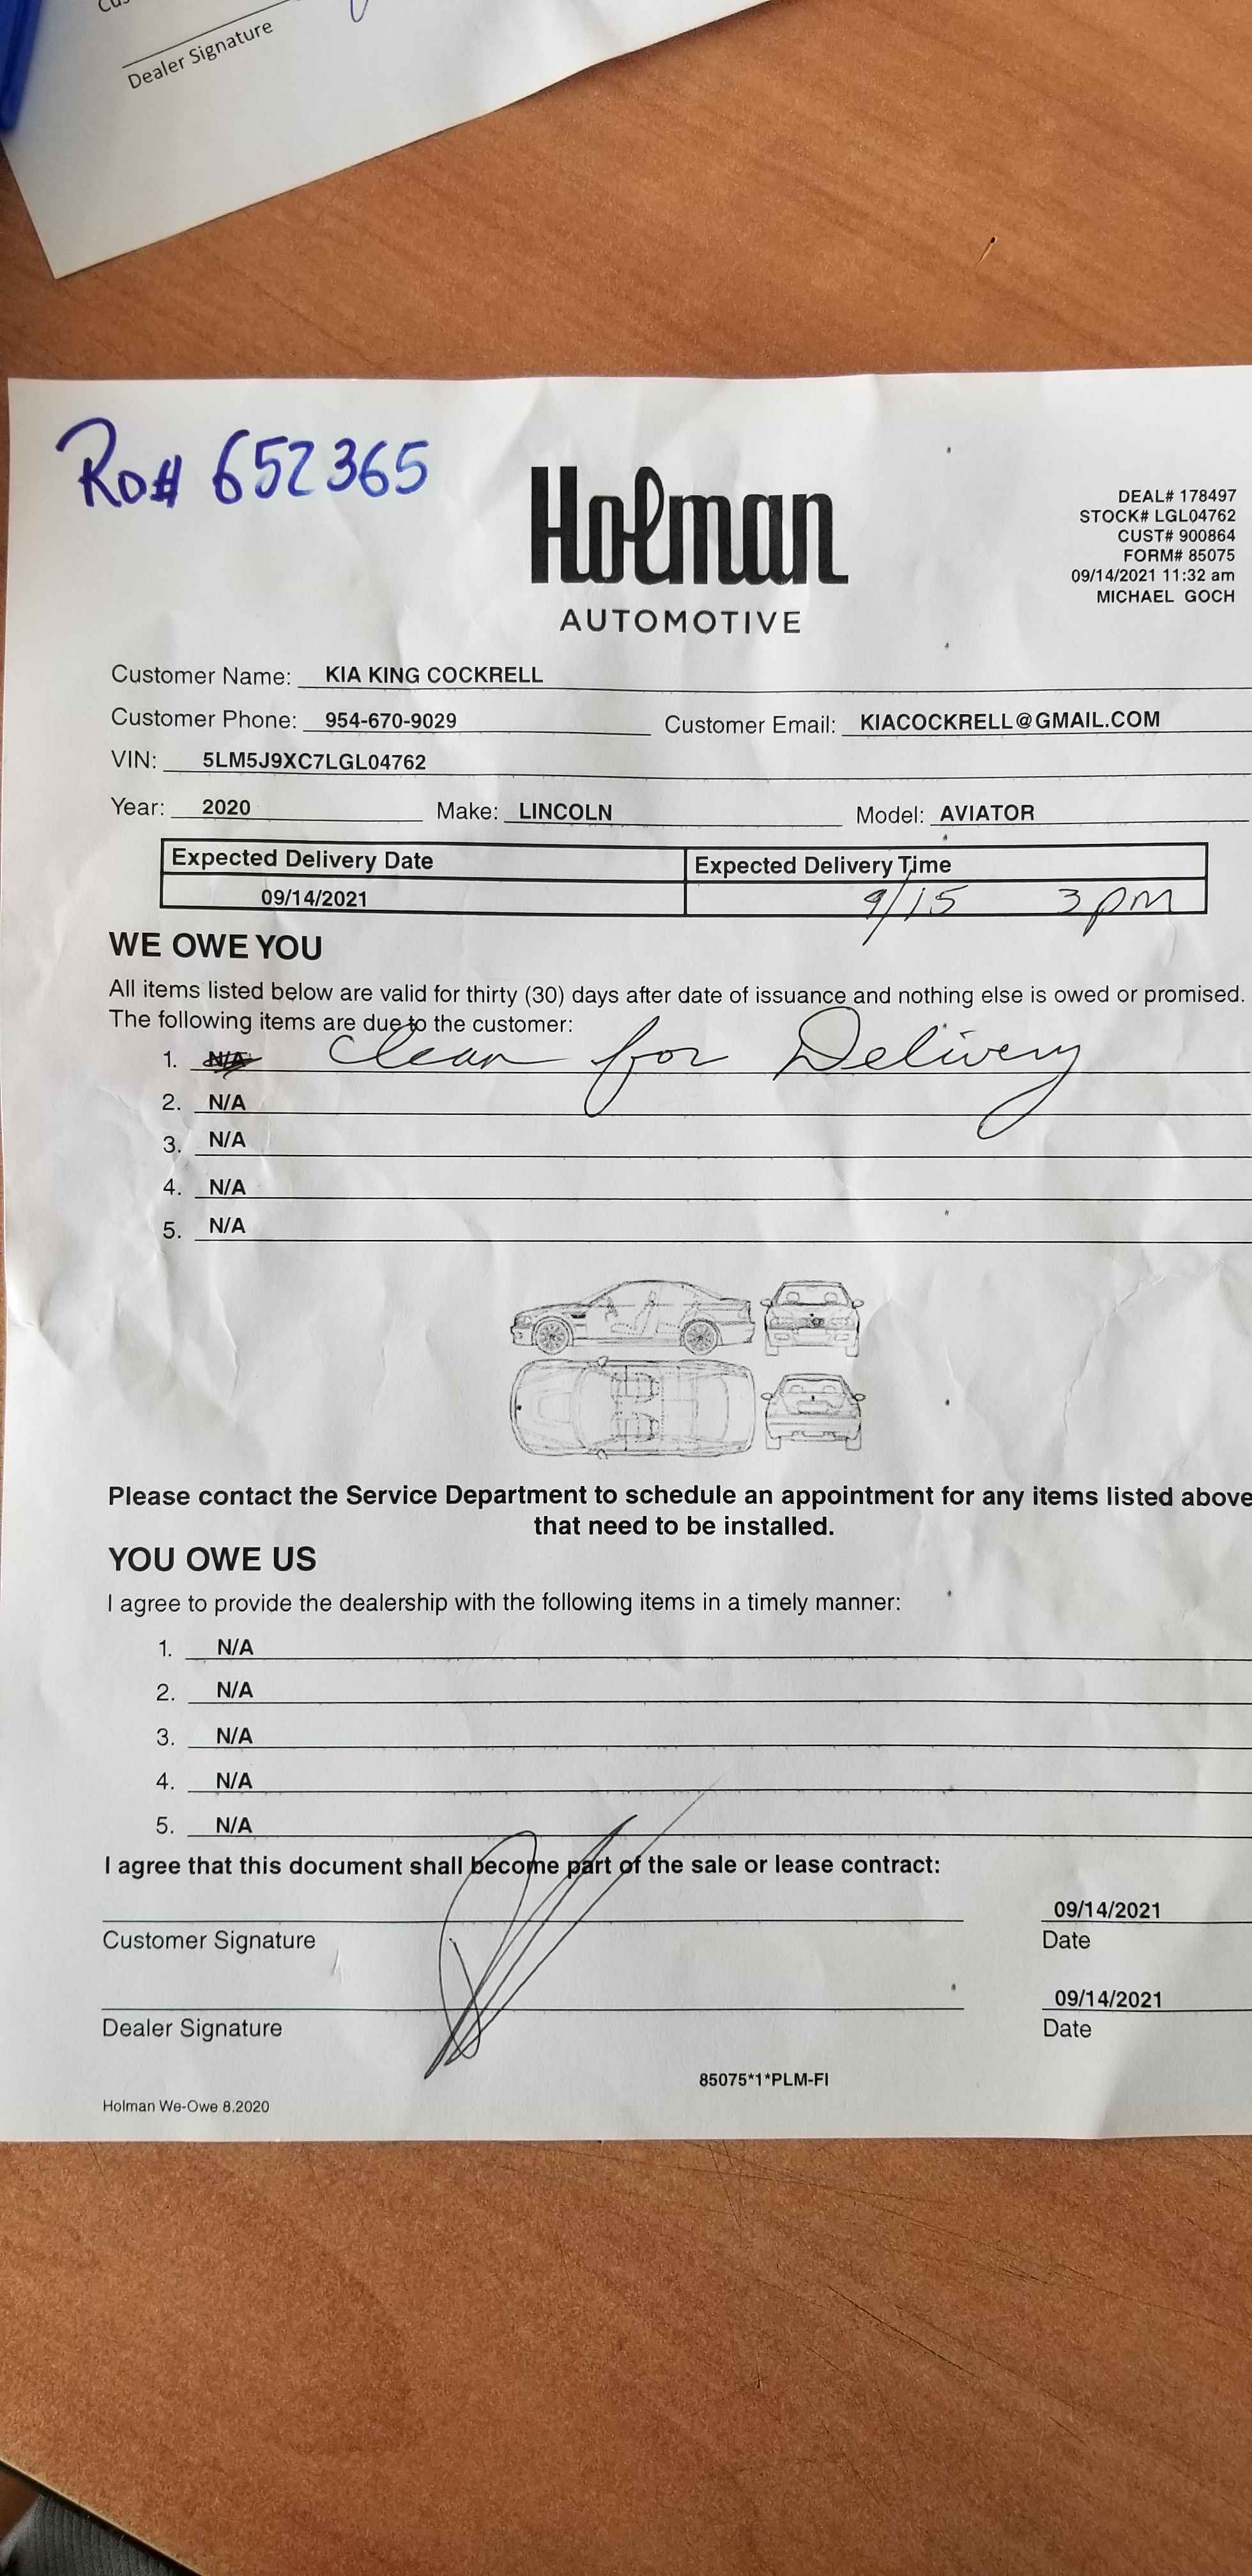 Dealer Signature
Ro# 652365
Holman
AUTOMOTIVE
DEAL# 178497
STOCK# LGL04762
CUST# 900864
FORM# 85075
09/14/2021 11:32 am
MICHAEL GOCH
Customer Name: KIA KING COCKRELL
Customer Phone: 954-670-9029 Customer Email: KIACOCKRELL@GMAIL.COM
VIN: 5LM5J9XC7LGL04762
Year: 2020 Make: LINCOLN Model: AVIATOR
Expected Delivery Date Expected Delivery Time
09/14/2021 9/15 3pm
WE OWE YOU
All items listed below are valid for thirty (30) days after date of issuance and nothing else is owed or promised.
The following items are due to the customer:
1. N/A Clean for Delivery
2. N/A
3. N/A
4. N/A
5. N/A
Please contact the Service Department to schedule an appointment for any items listed above
that need to be installed.
YOU OWE US
I agree to provide the dealership with the following items in a timely manner:
1. N/A
2. N/A
3. N/A
4. N/A
5. N/A
I agree that this document shall become part of the sale or lease contract:
09/14/2021
Customer Signature Date
09/14/2021
Dealer Signature Date
85075*1*PLM-FI
Holman We-Owe 8.2020